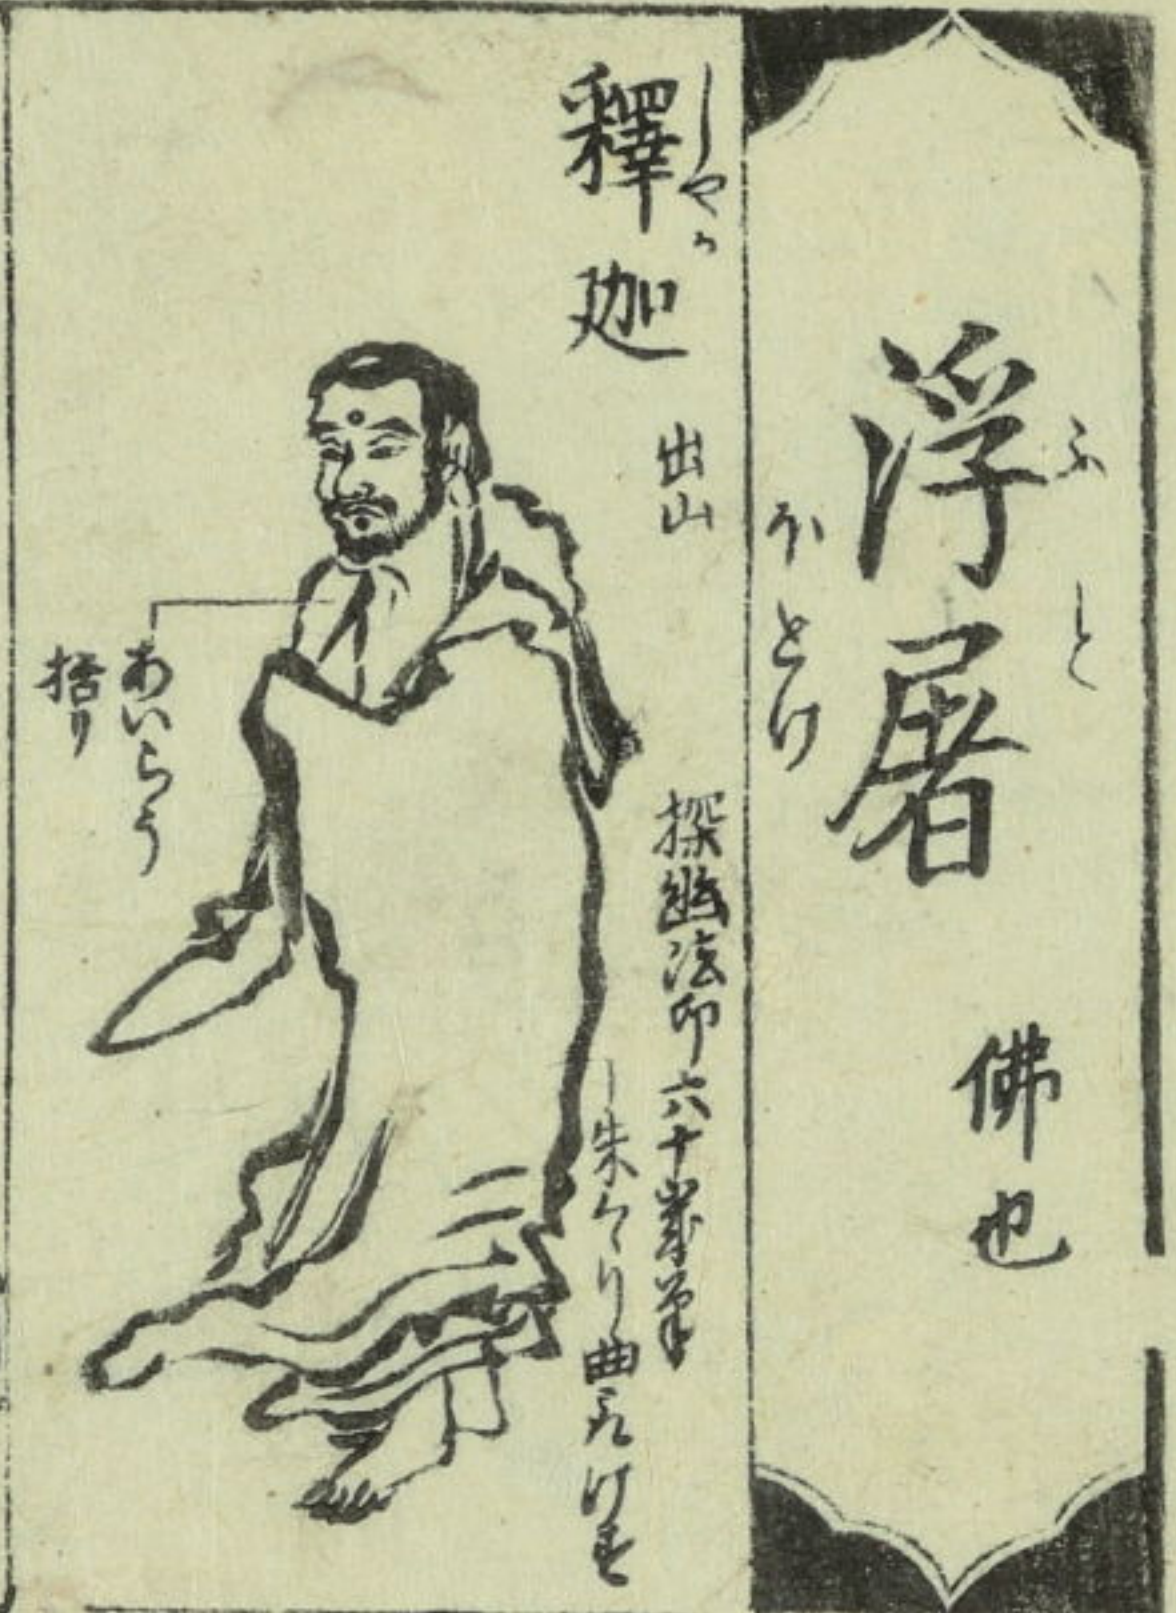 浮屠
ふと
ほとけ
佛也
釋迦
しやか
出山
探幽法印六十歳筆
朱くゝり曲
あいらう
括り